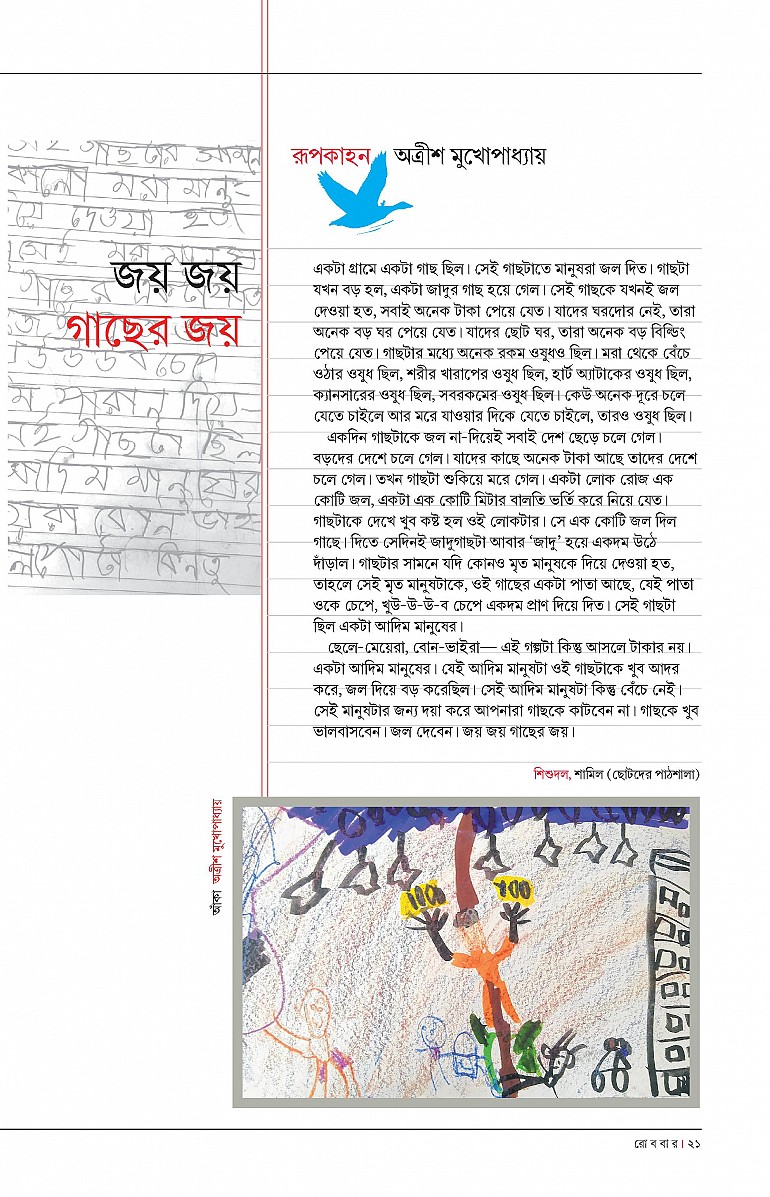 রূপকাহন অত্রীশ মুখোপাধ্যায়
জয় জয়
গাছের জয়
একটা গ্রামে একটা গাছ ছিল। সেই গাছটাতে মানুষরা জল দিত। গাছটা
যখন বড় হল, একটা জাদুর গাছ হয়ে গেল। সেই গাছকে যখনই জল
দেওয়া হত, সবাই অনেক টাকা পেয়ে যেত। যাদের ঘরদোর নেই, তারা
অনেক বড় ঘর পেয়ে যেত। যাদের ছোট ঘর, তারা অনেক বড় বিল্ডিং
পেয়ে যেত। গাছটার মধ্যে অনেক রকম ওষুধও ছিল। মরা থেকে বেঁচে
ওঠার ওষুধ ছিল, শরীর খারাপের ওষুধ ছিল, হার্ট অ্যাটাকের ওষুধ ছিল,
ক্যানসারের ওষুধ ছিল, সবরকমের ওষুধ ছিল। কেউ অনেক দূরে চলে
যেতে চাইলে আর মরে যাওয়ার দিকে যেতে চাইলে, তারও ওষুধ ছিল।
একদিন গাছটাকে জল না-দিয়েই সবাই দেশ ছেড়ে চলে গেল।
বড়দের দেশে চলে গেল। যাদের কাছে অনেক টাকা আছে তাদের দেশে
চলে গেল। তখন গাছটা শুকিয়ে মরে গেল। একটা লোক রোজ এক
কোটি জল, একটা এক কোটি মিটার বালতি ভর্তি করে নিয়ে যেত।
গাছটাকে দেখে খুব কষ্ট হল ওই লোকটার। সে এক কোটি জল দিল
গাছে। দিতে সেদিনই জাদুগাছটা আবার ‘জাদু’ হয়ে একদম উঠে
দাঁড়াল। গাছটার সামনে যদি কোনও মৃত মানুষকে দিয়ে দেওয়া হত,
তাহলে সেই মৃত মানুষটাকে, ওই গাছের একটা পাতা আছে, যেই পাতা
ওকে চেপে, খুউ-উ-উ-ব চেপে একদম প্রাণ দিয়ে দিত। সেই গাছটা
ছিল একটা আদিম মানুষের।
ছেলে-মেয়েরা, বোন-ভাইরা— এই গল্পটা কিন্তু আসলে টাকার নয়।
একটা আদিম মানুষের। যেই আদিম মানুষটা ওই গাছটাকে খুব আদর
করে, জল দিয়ে বড় করেছিল। সেই আদিম মানুষটা কিন্তু বেঁচে নেই।
সেই মানুষটার জন্য দয়া করে আপনারা গাছকে কাটবেন না। গাছকে খুব
ভালবাসবেন। জল দেবেন। জয় জয় গাছের জয়।
শিশুদল, শামিল (ছোটদের পাঠশালা)
আঁকা অত্রীশ মুখোপাধ্যায়
রোববার। ২১